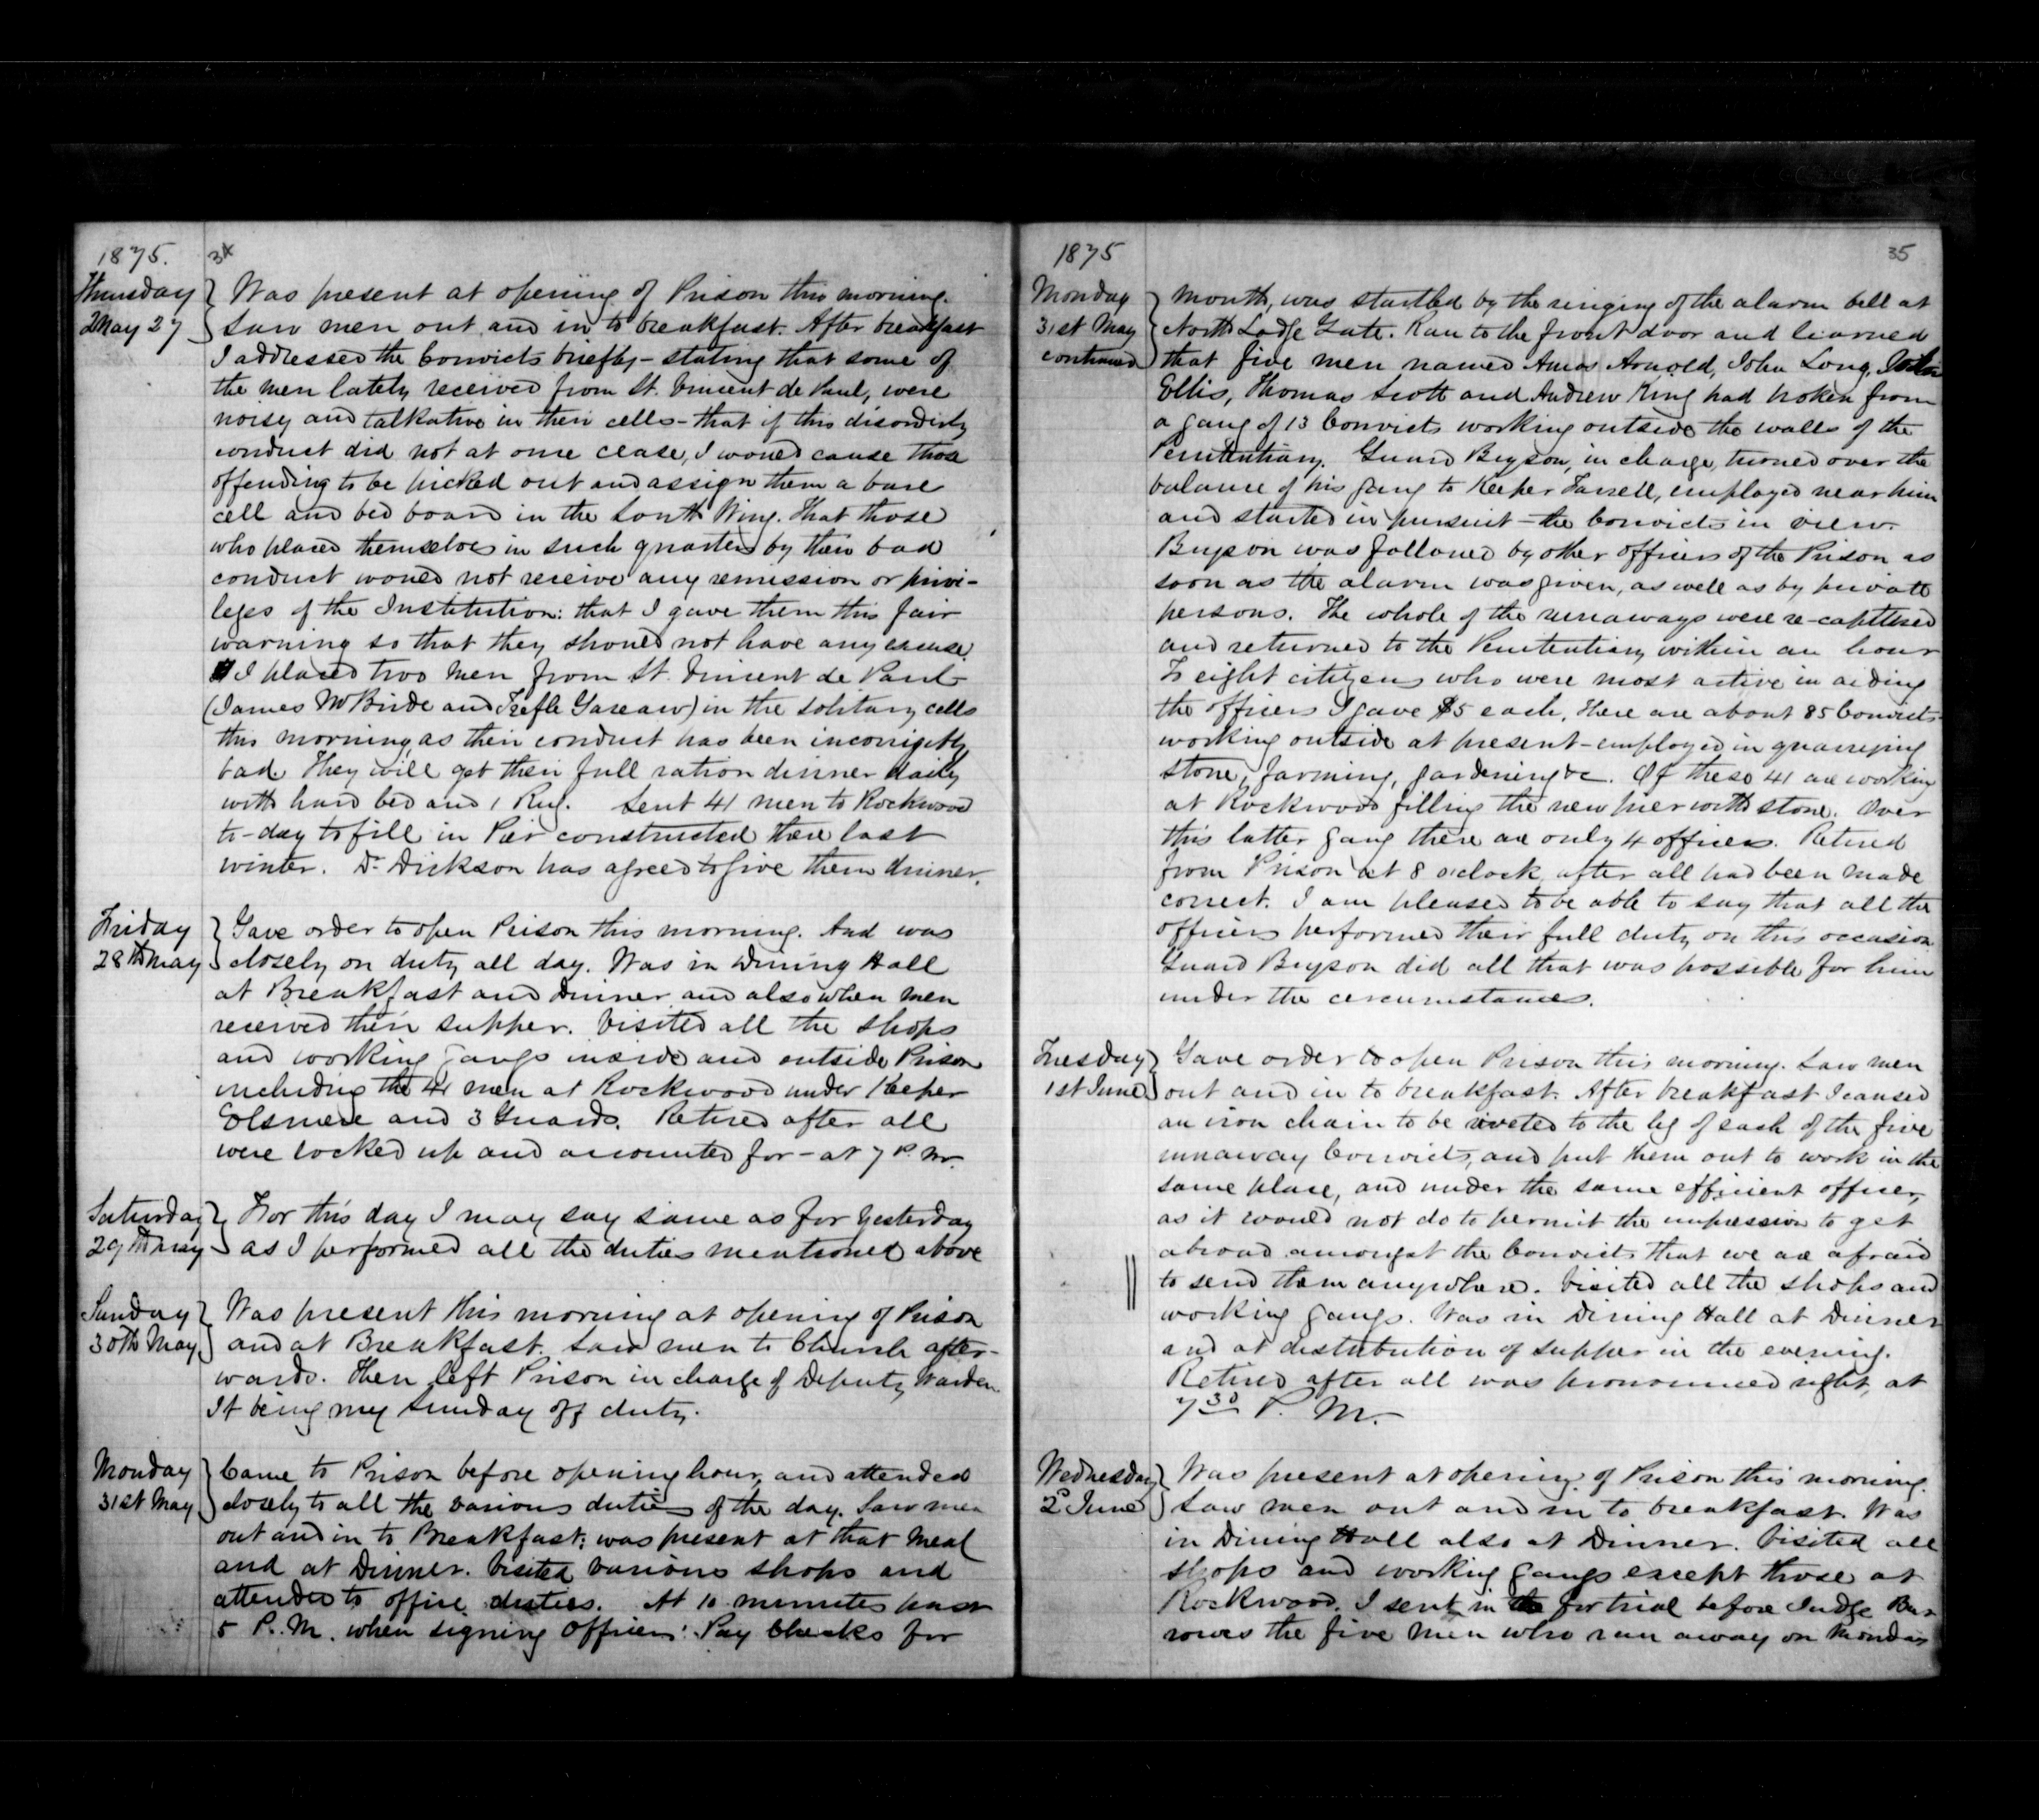 1875. 34
Thursday Was present at opening of Prison this morning.
May 27 Saw men out and in to breakfast. After breakfast
I addressed the Convicts briefly - stating that some of
the men lately received from St. Vincent de Paul, were
noisy and talkative in their cells - that if this disorderly
conduct did not at once cease, I would cause those
offending to be picked out and assign them a bare
cell and bed board in the South Wing. That those
who placed themselves in such quarters by their bad
conduct would not receive any remission or privi-
leges of the Institution: that I gave them this fair
warning so that they should not have any excuse.
I placed two men from St. Vincent de Paul
(James McBride and Trefle Gareau) in the solitary cells
this morning, as their conduct has been incorrigibly
bad. They will get their full ration dinner daily
with hard bed and 1 Rug. Sent 41 men to Rockwood
to-day to fill in Pier constructed there last
winter. Dr. Dickson has agreed to give them dinner.
Friday Gave order to open Prison this morning. And was
28th May closely on duty all day. Was in Dining Hall
at Breakfast and Dinner and also when men
received their supper. Visited all the shops
and working gangs inside and outside Prison
including the 41 men at Rockwood under Keeper
Elsmere and 3 Guards. Retired after all
were locked up and accounted for - at 7 P.M.
Saturday For this day I may say same as for yesterday
29th May as I performed all the duties mentioned above
Sunday Was present this morning at opening of Prison
30th May and at Breakfast. Saw men to Church after-
wards. Then left Prison in charge of Deputy Warden
It being my Sunday off duty.
Monday Came to Prison before opening hour, and attended
31st May closely to all the various duties of the day. Saw men
out and in to Breakfast; was present at that meal
and at Dinner. Visited various shops and
attended to office duties. At 10 minutes past
5 P.M. when signing Officers' Pay Checks for
1875 35
Monday month, was startled by the ringing of the alarm bell at
31st May North Lodge Gate. Ran to the front door and learned
continued that five men named Amos Arnold, John Long, John
Ellis, Thomas Scott and Andrew King had broken from
a gang of 13 Convicts working outside the walls of the
Penitentiary. Guard Bryson, in charge, turned over the
balance of his gang to Keeper Farrell, employed near him
and started in pursuit - the Convicts in view.
Bryson was followed by other officers of the Prison as
soon as the alarm was given, as well as by private
persons. The whole of the runaways were re-captured
and returned to the Penitentiary within an hour
To eight citizens who were most active in aiding
the officers I gave $5 each. There are about 85 Convicts
working outside at present - employed in quarrying
stone, farming, gardening &c. Of these 41 are working
at Rockwood filling the new pier with stone. Over
this latter gang there are only 4 officers. Retired
from Prison at 8 o'clock after all had been made
correct. I am pleased to be able to say that all the
officers performed their full duty on this occasion
Guard Bryson did all that was possible for him
under the circumstances.
Tuesday Gave order to open Prison this morning. Saw men
1st June out and in to breakfast. After breakfast I caused
an iron chain to be riveted to the leg of each of the five
runaway Convicts, and put them out to work in the
same place, and under the same efficient officer,
as it would not do to permit the impression to get
abroad amongst the Convicts that we are afraid
to send them anywhere. Visited all the shops and
working gangs. Was in Dining Hall at Dinner
and at distribution of supper in the evening.
Retired after all was pronounced right, at
7 30 P. M.
Wednesday Was present at opening of Prison this morning.
2d June Saw men out and in to breakfast. Was
in Dining Hall also at Dinner. Visited all
shops and working gangs except those at
Rockwood. I sent in for trial before Judge Bur-
rowes the five men who ran away on Monday